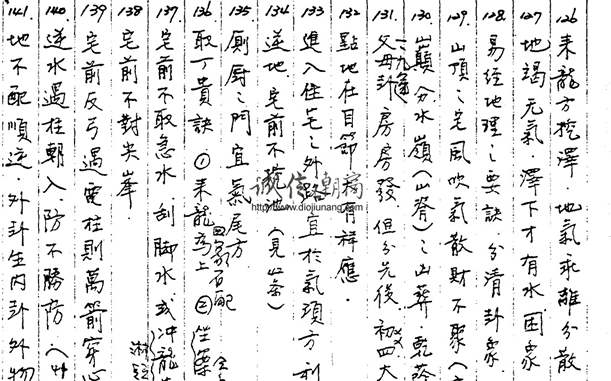 126 來龍方挖澤 地氣乖離分散
127 地竭元氣·澤下才有水困象
128 易經地理之要訣 分清卦象
129 山頂之宅風吹氣散財不聚
130 山巔分水嶺(山脊)之山葬·乾
131 父母卦 房房發 但分先後 初四大
132 點地在目節 有祥應·
133 進入住宅之外路宜於氣頊方
134 逆地 宅前不 (見 條)
135 厠廚之門宜氣尾方
136 取丁貴訣 ①來龍 上 ②坐
137 宅前不取急水 刮脚水 或冲龍
138 宅前不對尖峯
139 宅前反弓遇電柱則萬箭穿心
140 逆水過柱朝入·防不勝防·
141 地不配順逆 外卦生內卦外物
誠信
http://www.diojiunang.com